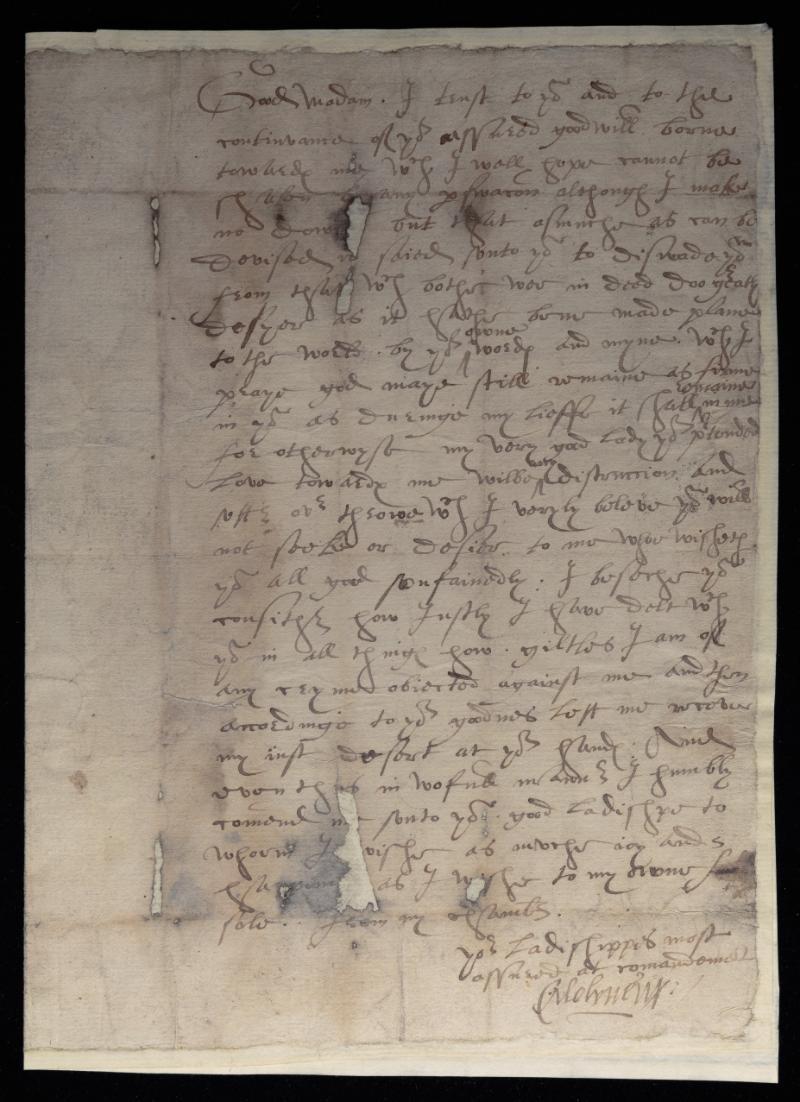 Good Madam. I trust to yor and to the
continvance of yor assured goodwill borne
towards me wch I well hope cannot be
by any pswacon although I make
no dowt but that asmuche as can be
devised is saied vnto yow to diswade yow
from that wch bothe wee in deed doo greatly
desyer as it hathe bene made plaine
to the world by yor owne words and myne. wch I
praye god maye still remaine as firme
in yow as duringe my lieffe it shall remaine in me
for otherwyse my very good lady yor ptended
love towards me wilbe my distruccion. And
vtter over throwe wch I veryly beleve yow will
not seeke or desier to me who wisheth
yow all good vnfainedly. I beseche yow
consither how Iustly I have delt wth
yow in all things how giltles I am of
any cryme obiected against me and then
accordinge to yor goodnes lett me recover
my iust desert at yor hands. And
even thus in wofull manner I humbly
comend me vnto yor good ladishype to
whom I wishe as muche ioy and
as I wishe to my owne
sole. from my chamber.
yor Ladishippes most
assured at comandement